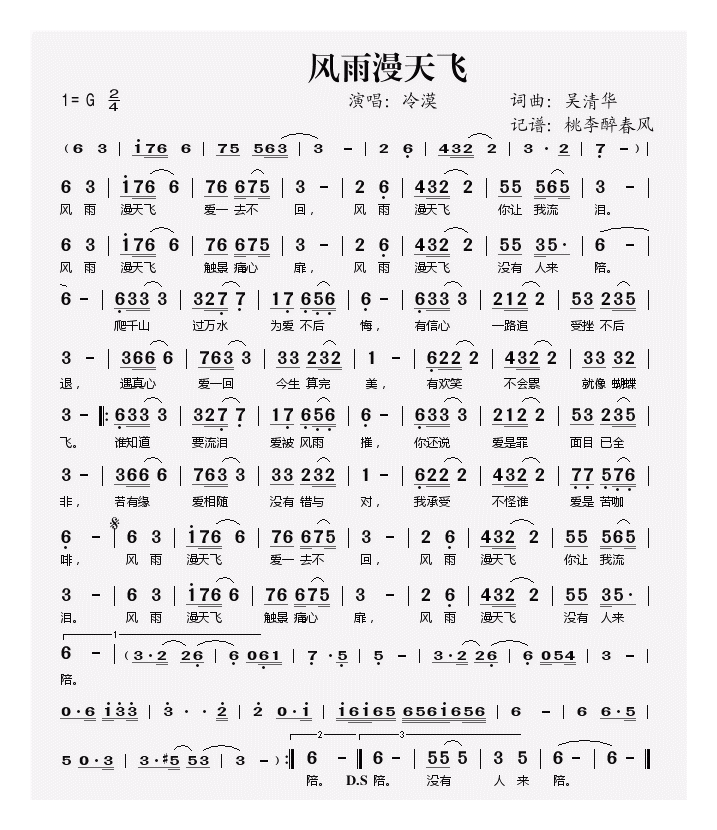 风雨漫天飞
1= G 2/4 演唱：冷漠 词曲：吴清华
记谱：桃李醉春风
( 6 3 | i76 6 | 75 563 | 3 - | 2 6 | 432 2 | 3 · 2 | 7 - ) |
6 3 | i76 6 | 76 675 | 3 - | 2 6 | 432 2 | 55 565 | 3 - |
风 雨 漫天飞 爱一 去不 回， 风 雨 漫天飞 你让 我流 泪。
6 3 | i76 6 | 76 675 | 3 - | 2 6 | 432 2 | 55 35· | 6 - |
风 雨 漫天飞 触景 痛心 扉， 风 雨 漫天飞 没有 人来 陪。
6 - | 633 3 | 327 7 | 17 656 | 6 - | 633 3 | 212 2 | 53 235 |
爬千山 过万水 为爱 不后 悔， 有信心 一路追 受挫 不后
3 - | 366 6 | 763 3 | 33 232 | 1 - | 622 2 | 432 2 | 33 32 |
退， 遇真心 爱一回 今生 算完 美， 有欢笑 不会累 就像 蝴蝶
3 - ‖: 633 3 | 327 7 | 17 656 | 6 - | 633 3 | 212 2 | 53 235 |
飞。 谁知道 要流泪 爱被 风雨 摧， 你还说 爱是罪 面目 已全
3 - | 366 6 | 763 3 | 33 232 | 1 - | 622 2 | 432 2 | 77 576 |
非， 若有缘 爱相随 没有 错与 对， 我承受 不怪谁 爱是 苦咖
6 - | 6 3 | i76 6 | 76 675 | 3 - | 2 6 | 432 2 | 55 565 |
啡， 风 雨 漫天飞 爱一 去不 回， 风 雨 漫天飞 你让 我流
3 - | 6 3 | i76 6 | 76 675 | 3 - | 2 6 | 432 2 | 55 35· |
泪。 风 雨 漫天飞 触景 痛心 扉， 风 雨 漫天飞 没有 人来
1
6 - | ( 3·2 26 | 6 061 | 7 ·5 | 5 - | 3·2 26 | 6 054 | 3 - |
陪。
0·6 i33 | 3 · ·2 | 2 0·i | i6i65 656i656 | 6 - | 6 6·5 |
2 3
5 0·3 | 3·#5 53 | 3 - ) :‖ 6 - ‖ 6 - | 555 5 | 3 5 | 6 - | 6 - ‖
陪。 D.S 陪。 没有 人 来 陪。